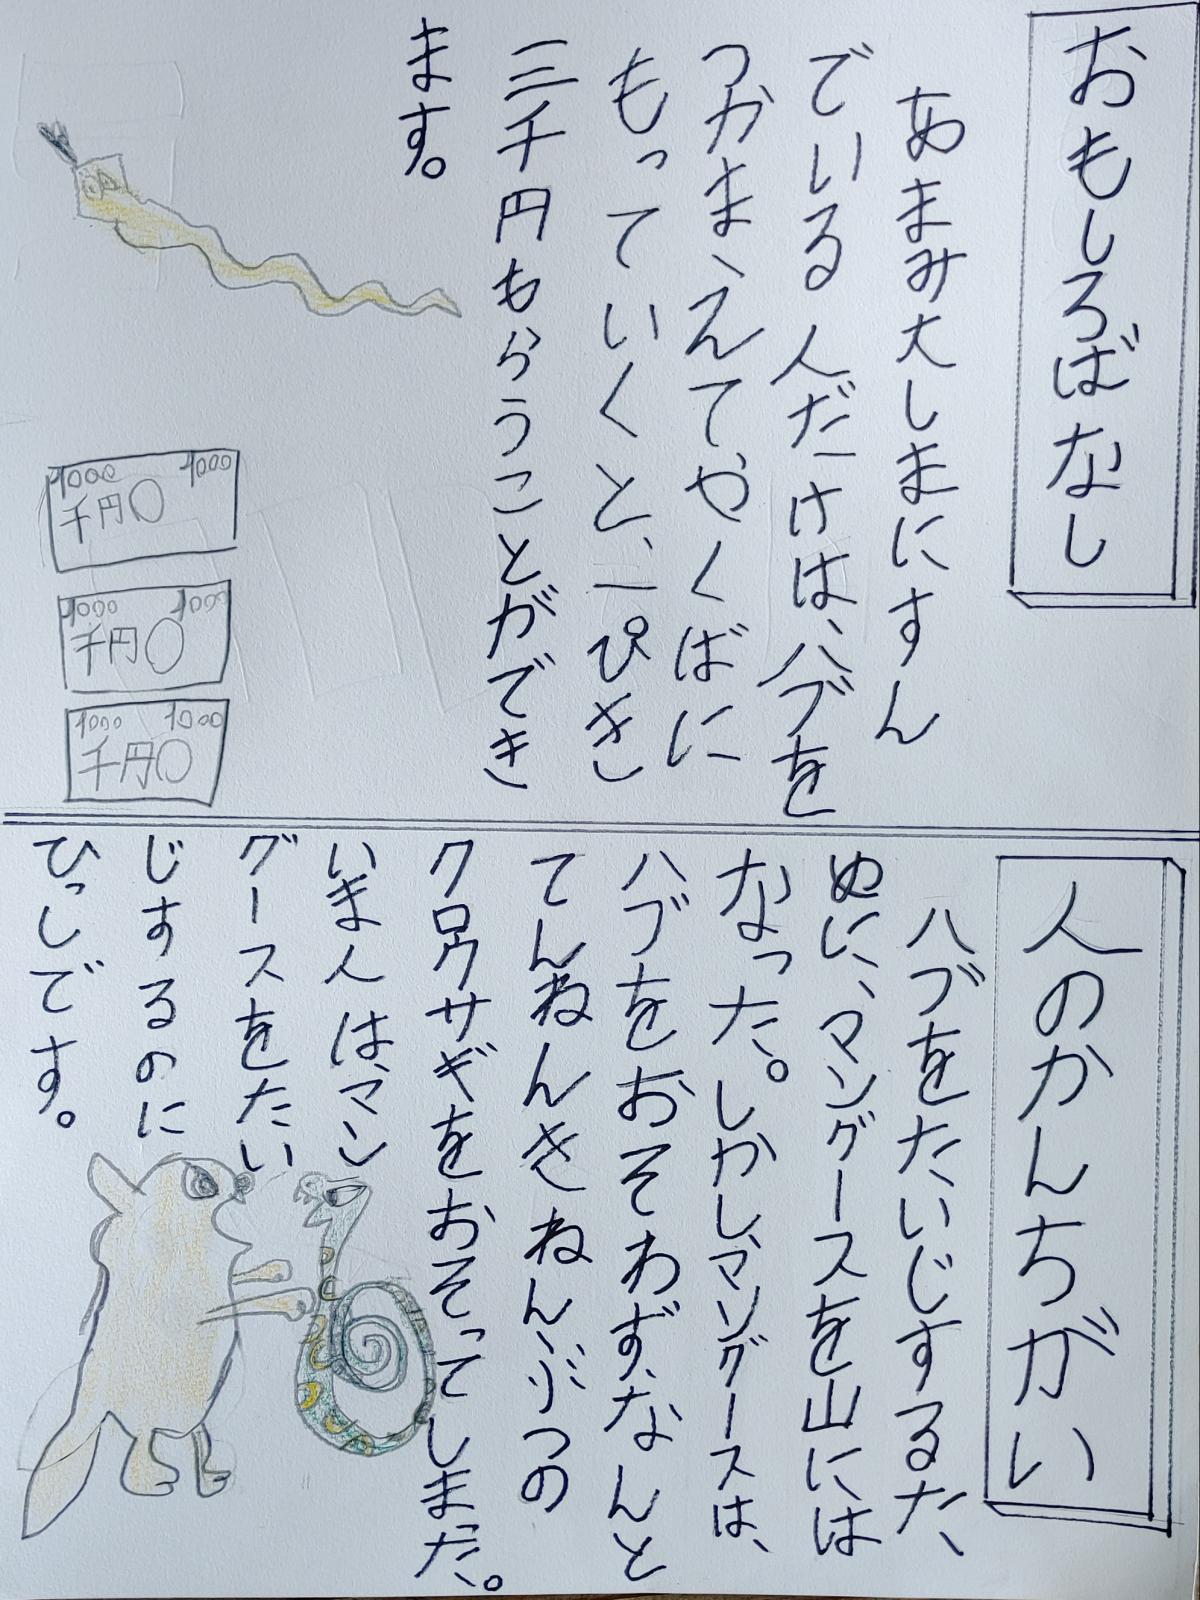 おもしろばなし
あまみ大しまにすん
でいる人だけは、ハブを
つかまえてやくばに
もっていくと、一ぴき
三千円もらうことができ
ます。
1000 1000
千円
1000 1000
千円
1000 1000
千円
人のかんちがい
ハブをたいじするた、
めに、マングースを山には
なった。しかし、マングースは、
ハブをおそわず、なんと
てんねんきねんぶつの
クロウサギをおそってしまた。
いま人は、マン
グースをたい
じするのに
ひっしです。